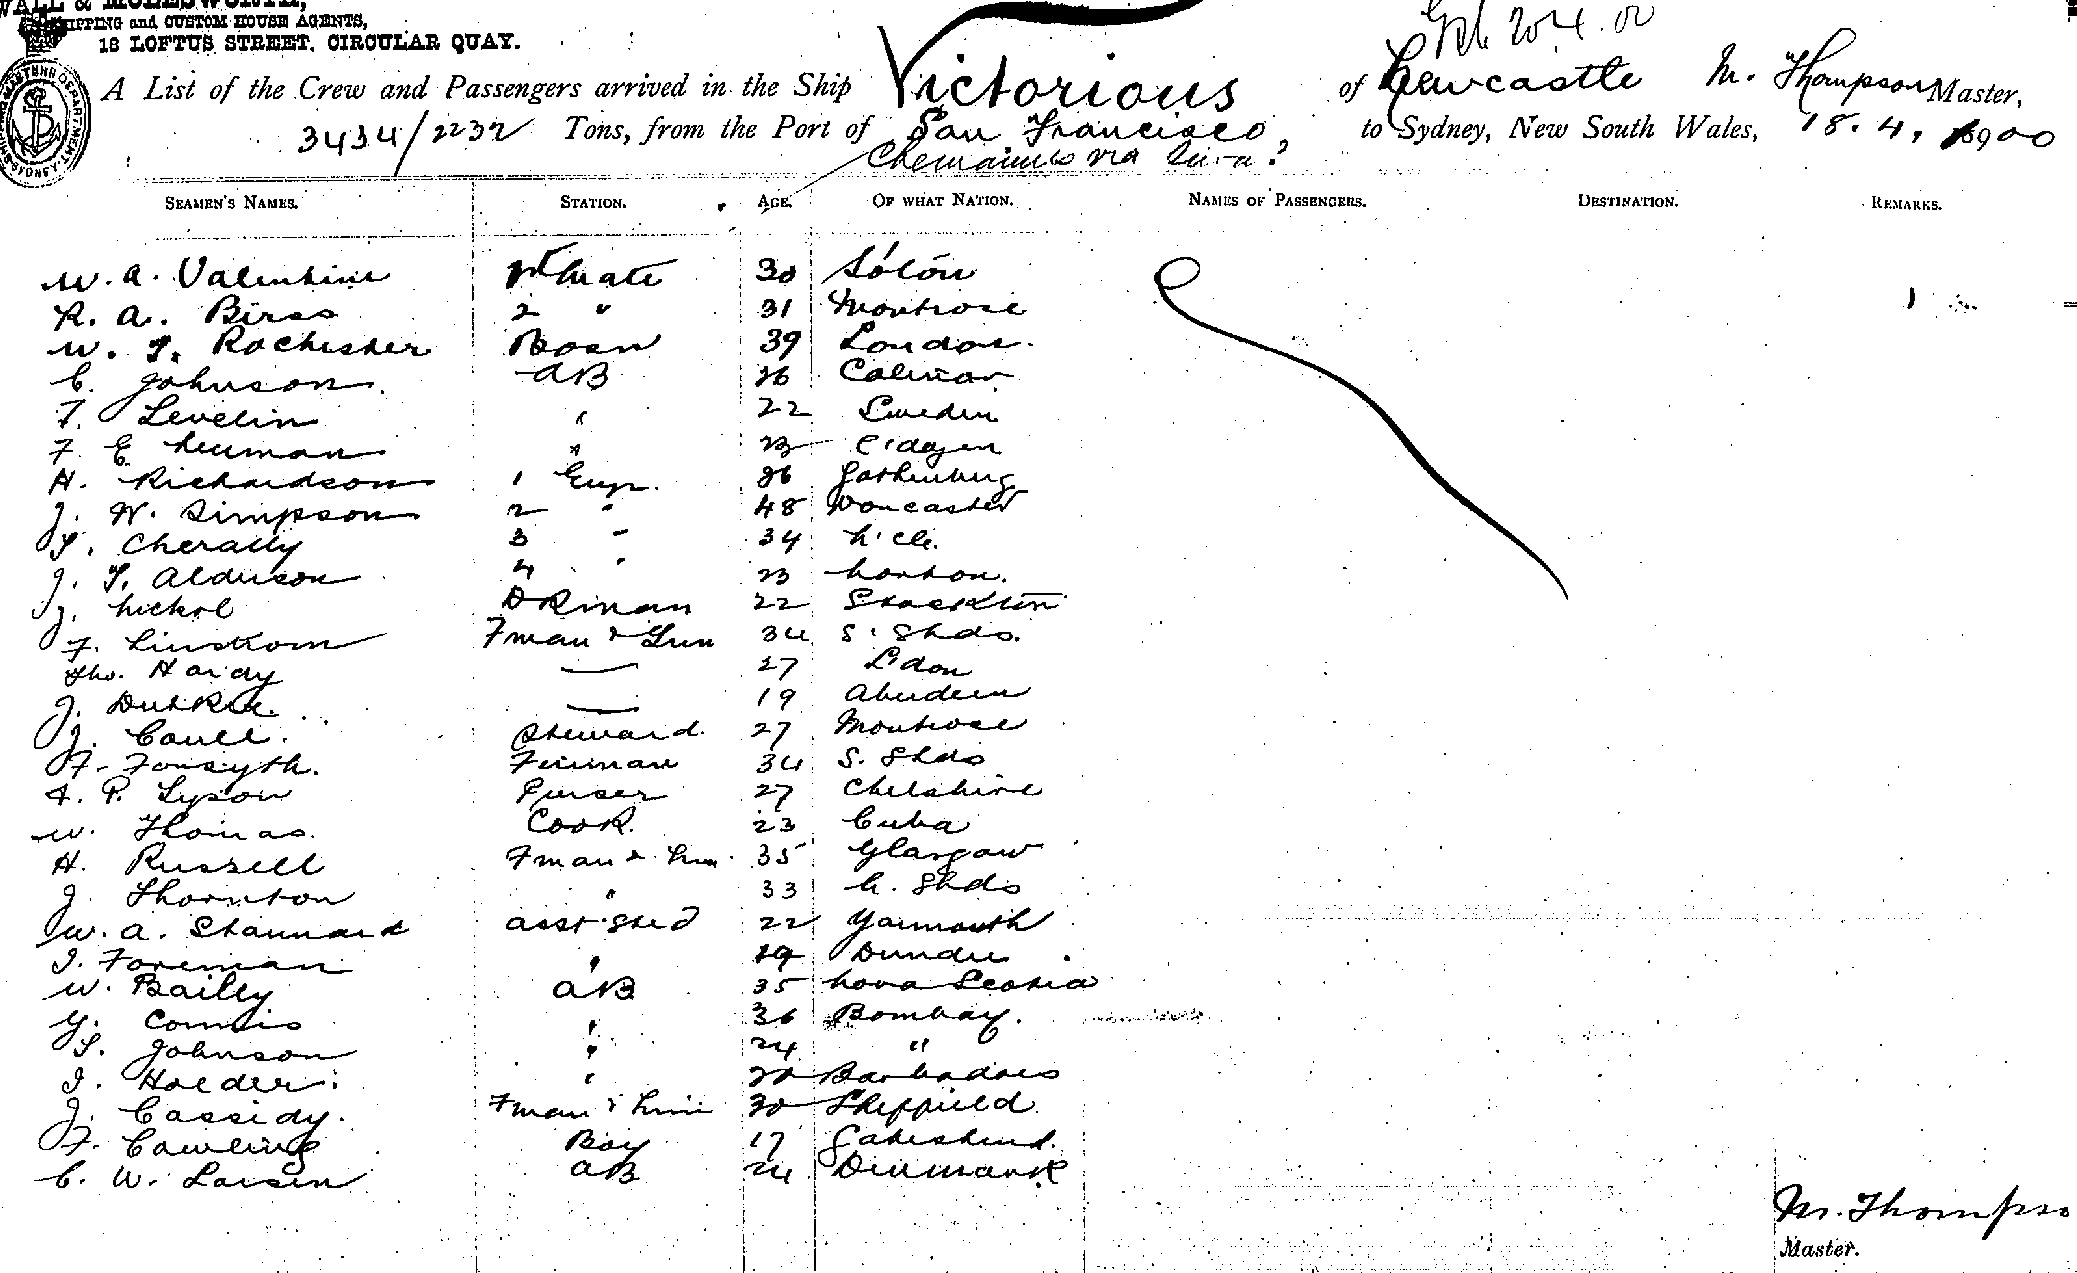 WALL & MOLESWORTH,
SHIPPING and CUSTOM HOUSE AGENTS,
18 LOFTUS STREET, CIRCULAR QUAY.
A List of the Crew and Passengers arrived in the Ship Victorious of Newcastle M. Thompson Master,
3434/2232 Tons, from the Port of San Francisco to Sydney, New South Wales, 18.4.1900
Chemainus via
SEAMEN'S NAMES. STATION. AGE. OF WHAT NATION. NAMES OF PASSENGERS. DESTINATION. REMARKS.
W. A. Valentine 1st Mate 30
R. A. Birss 2 " 31 Montrose
W. T. Rochester Bosn 39 London.
C. Johnson. AB 26 Calmar
F. Levelin " 22 Sweden
F. E. Neuman " 23
H. Richardson 1 Eng. 26 Gothenburg
J. W. Simpson 2 " 48 Doncaster
T. Cherally 3 " 34 N. Cle.
J. T. Alderson 4 " 23
J. Nickol DKman 22 Stockton
F. Linstrom Fman & Trim 34 S. Shds.
Tho. Hardy — 27 L'don
J. — 19 Aberdeen
J. Steward. 27 Montrose
F. Forsyth. Fireman 34 S. Shds
A. P. Tyson Purser 27 Cheshire
W. Thomas. Cook. 23 Cuba
H. Russell Fman & Trim. 35 Glasgow
J. Thornton " 33 N. Shds
W. A. Stannard asst Sted 22 Yarmouth
J. Foreman " 19 Dundee
W. Bailey AB 35 Nova Scotia
G. " 36 Bombay.
S. Johnson " 24 "
J. Holder. " 20 Barbadoes
J. Cassidy. Fman & Trim 30 Sheffield.
F. Cowling Boy 17 Gateshead.
C. W. Larsen AB 24 Denmark
M. Thompso
Master.